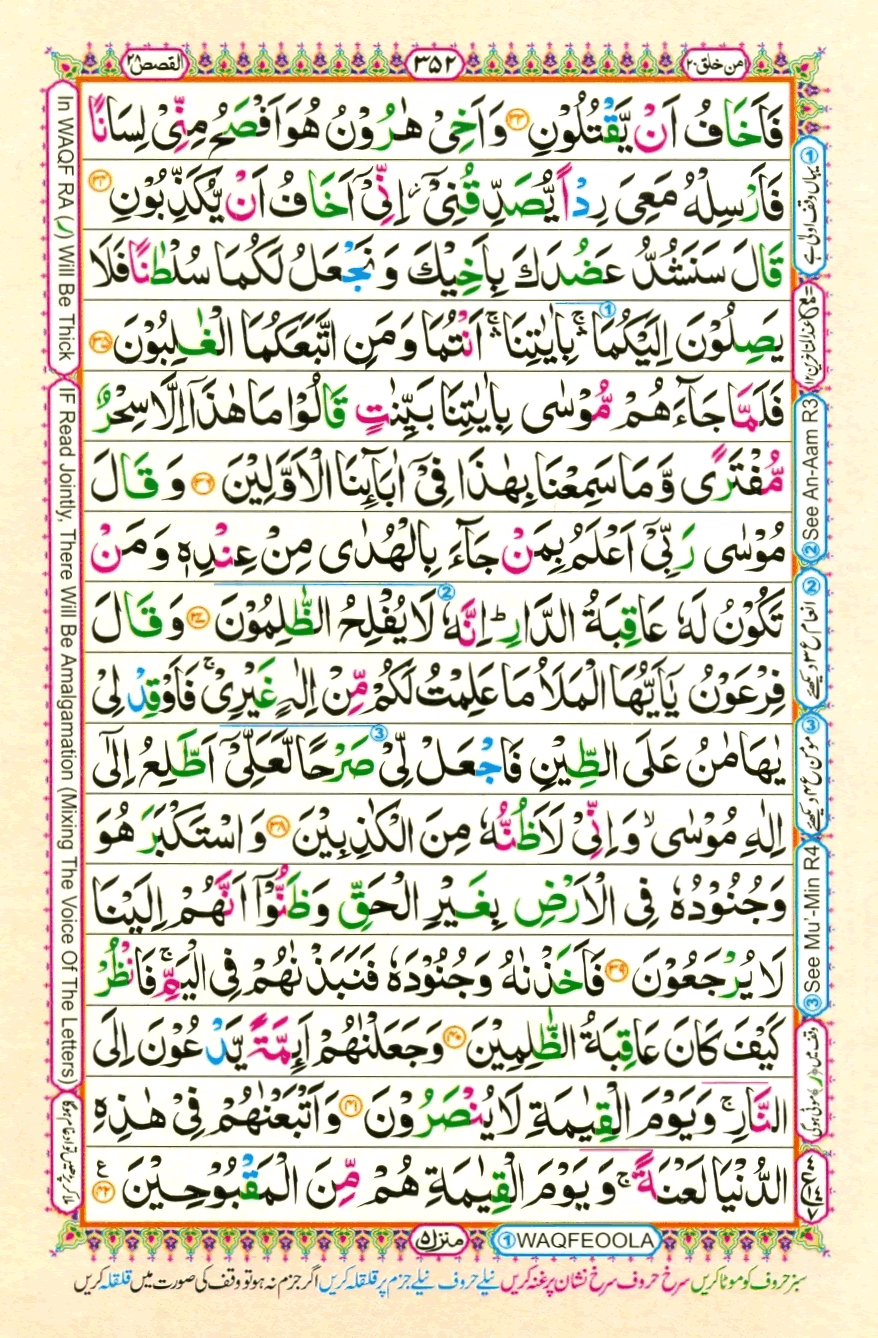 من خلق ٢٠
٣٥٢
القصص ٢٨
فَاَخَافُ اَنْ يَّقْتُلُوْنِ ﴿٣٣﴾ وَاَخِيْ هٰرُوْنُ هُوَ اَفْصَحُ مِنِّيْ لِسَانًا
فَاَرْسِلْهُ مَعِيَ رِدْاً يُّصَدِّقُنِيْٓ ؗ اِنِّيْٓ اَخَافُ اَنْ يُّكَذِّبُوْنِ ﴿٣٤﴾
قَالَ سَنَشُدُّ عَضُدَكَ بِاَخِيْكَ وَنَجْعَلُ لَكُمَا سُلْطٰنًا فَلَا
يَصِلُوْنَ اِلَيْكُمَا ۛۚ بِاٰيٰتِنَآ ۛۚ اَنْتُمَا وَمَنِ اتَّبَعَكُمَا الْغٰلِبُوْنَ ﴿٣٥﴾
فَلَمَّا جَآءَهُمْ مُّوْسٰى بِاٰيٰتِنَا بَيِّنٰتٍ قَالُوْا مَا هٰذَآ اِلَّا سِحْرٌ
مُّفْتَرًى وَّمَا سَمِعْنَا بِهٰذَا فِيْٓ اٰبَآئِنَا الْاَوَّلِيْنَ ﴿٣٦﴾ وَقَالَ
مُوْسٰى رَبِّيْٓ اَعْلَمُ بِمَنْ جَآءَ بِالْهُدٰى مِنْ عِنْدِهٖ وَمَنْ
تَكُوْنُ لَهٗ عَاقِبَةُ الدَّارِ ؕ اِنَّهٗ لَا يُفْلِحُ الظّٰلِمُوْنَ ﴿٣٧﴾ وَقَالَ
فِرْعَوْنُ يٰٓاَيُّهَا الْمَلَاُ مَا عَلِمْتُ لَكُمْ مِّنْ اِلٰهٍ غَيْرِيْ ۚ فَاَوْقِدْ لِيْ
يٰهَامٰنُ عَلَى الطِّيْنِ فَاجْعَلْ لِّيْ صَرْحًا لَّعَلِّيْٓ اَطَّلِعُ اِلٰٓى
اِلٰهِ مُوْسٰى ۙ وَاِنِّيْ لَاَظُنُّهٗ مِنَ الْكٰذِبِيْنَ ﴿٣٨﴾ وَاسْتَكْبَرَ هُوَ
وَجُنُوْدُهٗ فِي الْاَرْضِ بِغَيْرِ الْحَقِّ وَظَنُّوْٓا اَنَّهُمْ اِلَيْنَا
لَا يُرْجَعُوْنَ ﴿٣٩﴾ فَاَخَذْنٰهُ وَجُنُوْدَهٗ فَنَبَذْنٰهُمْ فِي الْيَمِّ ۚ فَانْظُرْ
كَيْفَ كَانَ عَاقِبَةُ الظّٰلِمِيْنَ ﴿٤٠﴾ وَجَعَلْنٰهُمْ اَئِمَّةً يَّدْعُوْنَ اِلَى
النَّارِ ۚ وَيَوْمَ الْقِيٰمَةِ لَا يُنْصَرُوْنَ ﴿٤١﴾ وَاَتْبَعْنٰهُمْ فِيْ هٰذِهِ
الدُّنْيَا لَعْنَةً ۚ وَيَوْمَ الْقِيٰمَةِ هُمْ مِّنَ الْمَقْبُوْحِيْنَ ﴿٤٢﴾ ع
① یہاں وقف اولیٰ ہے
② See An-Aam R3
② انعام ع ۳ دیکھئے
③ مؤمن ع ۴ دیکھئے
③ See Mu'-Min R4
In WAQF RA (ر) Will Be Thick
IF Read Jointly, There Will Be Amalgamation (Mixing The Voice Of The Letters)
ملا کر پڑھیں تو ادغام ہوگا
منزل ٥
① WAQFEOOLA
سبز حروف کو موٹا کریں سرخ حروف سرخ نشان پر غنہ کریں نیلے حروف نیلے جزم پر قلقلہ کریں اگر جزم نہ ہو تو وقف کی صورت میں قلقلہ کریں